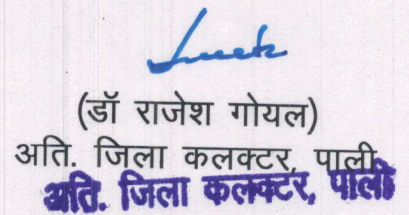 (डॉ राजेश गोयल)
अति. जिला कलक्टर, पाली
अति. जिला कलक्टर, पाली